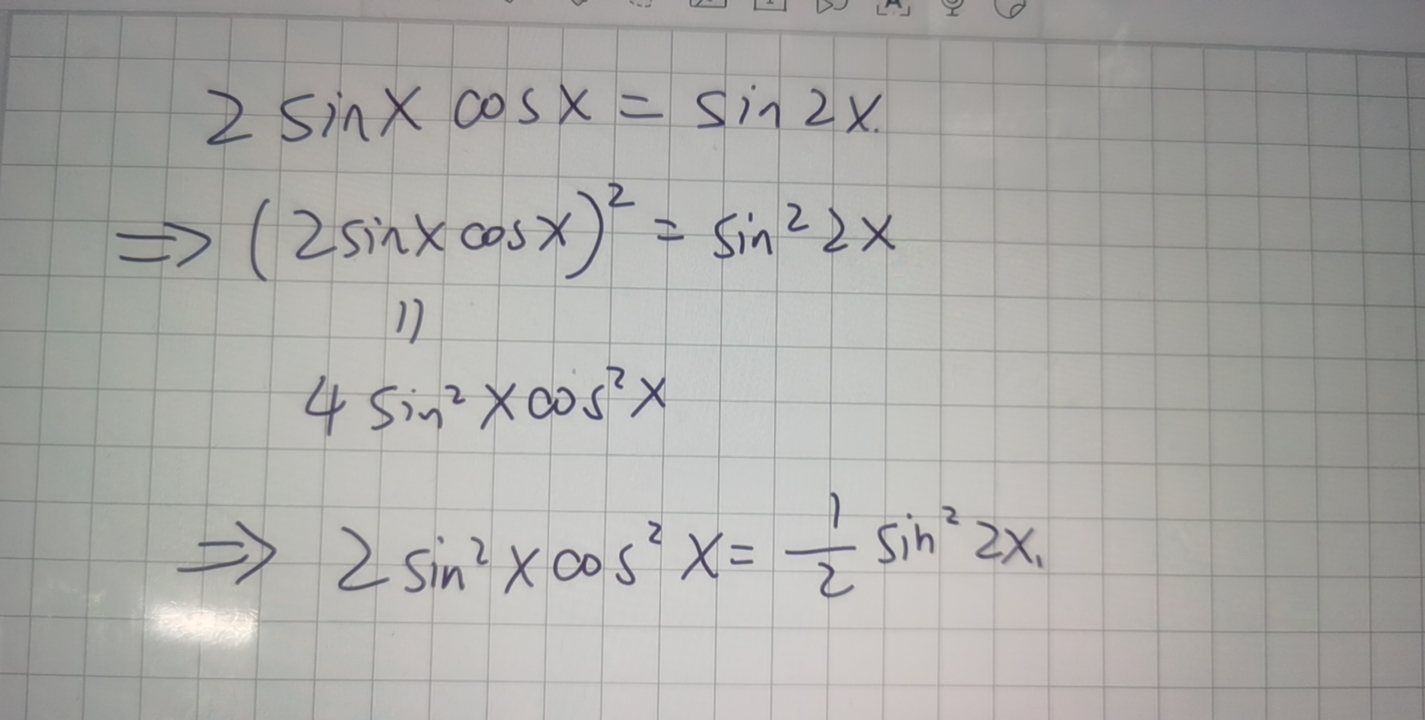 2 sin x cos x = sin 2x.
⇒ (2 sin x cos x)² = sin² 2x
=
4 sin² x cos² x
⇒ 2 sin² x cos² x = 1/2 sin² 2x.